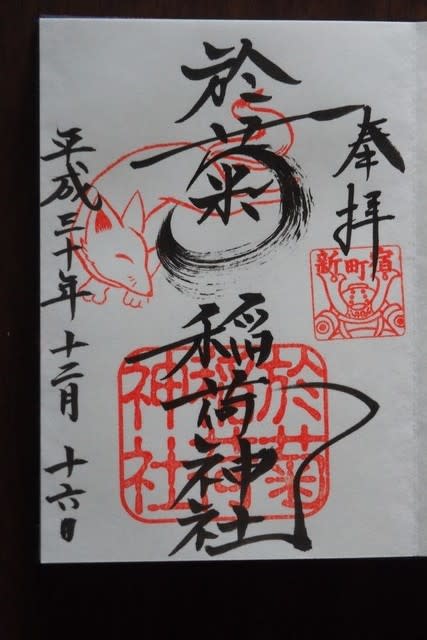 奉拝
新町宿
於菊稲荷神社
於菊
稲荷
神社
平成三十年十二月十六日